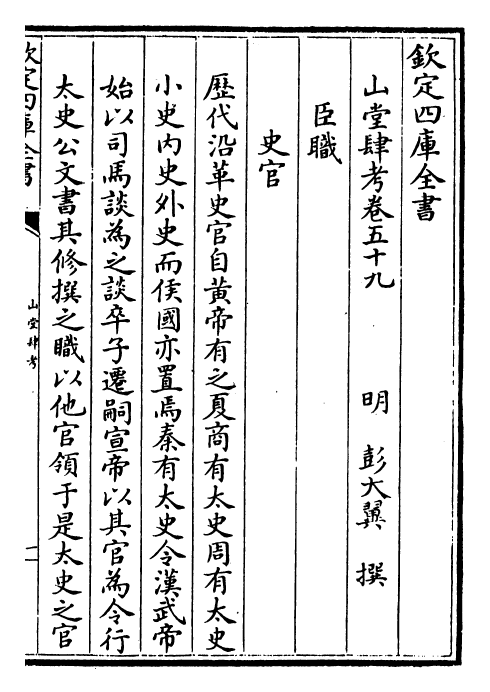 欽定四庫全書
山堂肆考卷五十九 明 彭大翼 撰
臣職
史官
歷代沿革史官自黃帝有之夏商有太史周有太史
小史內史外史而侯國亦置焉秦有太史令漢武帝
始以司馬談為之談卒子遷嗣宣帝以其官為令行
太史公文書其修撰之職以他官領于是太史之官
欽定四庫全書
山堂肆考
一